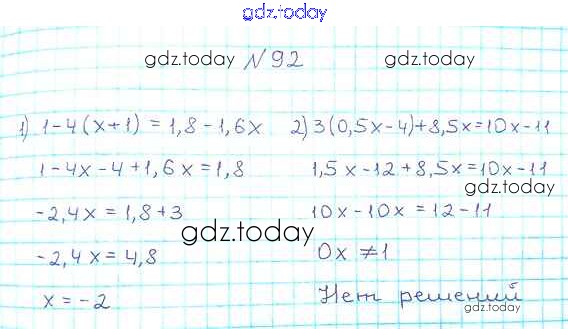 gdz.today
gdz.today №92 gdz.today
1) 1-4(x+1) = 1,8-1,6x 2) 3(0,5x-4)+8,5x=10x-11
1-4x-4+1,6x=1,8 1,5x-12+8,5x=10x-11
gdz.today
-2,4x = 1,8+3 10x-10x = 12-11
gdz.today
-2,4x = 4,8 0x ≠ 1
x = -2 Нет решений
gdz.today